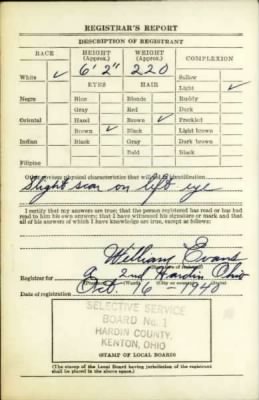 REGISTRAR'S REPORT
DESCRIPTION OF REGISTRANT
RACE HEIGHT (Approx.) WEIGHT (Approx.) COMPLEXION
6' 2" 220 Sallow
White ✓ EYES HAIR Light ✓
Negro Blue Blonde Ruddy
Gray Red Dark
Oriental Hazel Brown ✓ Freckled
Brown ✓ Black Light brown
Indian Black Gray Dark brown
Bald Black
Filipino
Other obvious physical characteristics that will aid in identification
Slight scar on left eye
I certify that my answers are true; that the person registered has read or has had
read to him his own answers; that I have witnessed his signature or mark and that
all of his answers of which I have knowledge are true, except as follows:
William Evans
(Signature of registrar)
Registrar for 2nd Hardin Ohio
(Precinct) (Ward) (City or county) (State)
Date of registration Oct 16 - 1940
SELECTIVE SERVICE
BOARD No. 1
HARDIN COUNTY,
KENTON, OHIO
(STAMP OF LOCAL BOARD)
(The stamp of the Local Board having jurisdiction of the registrant
shall be placed in the above space.)